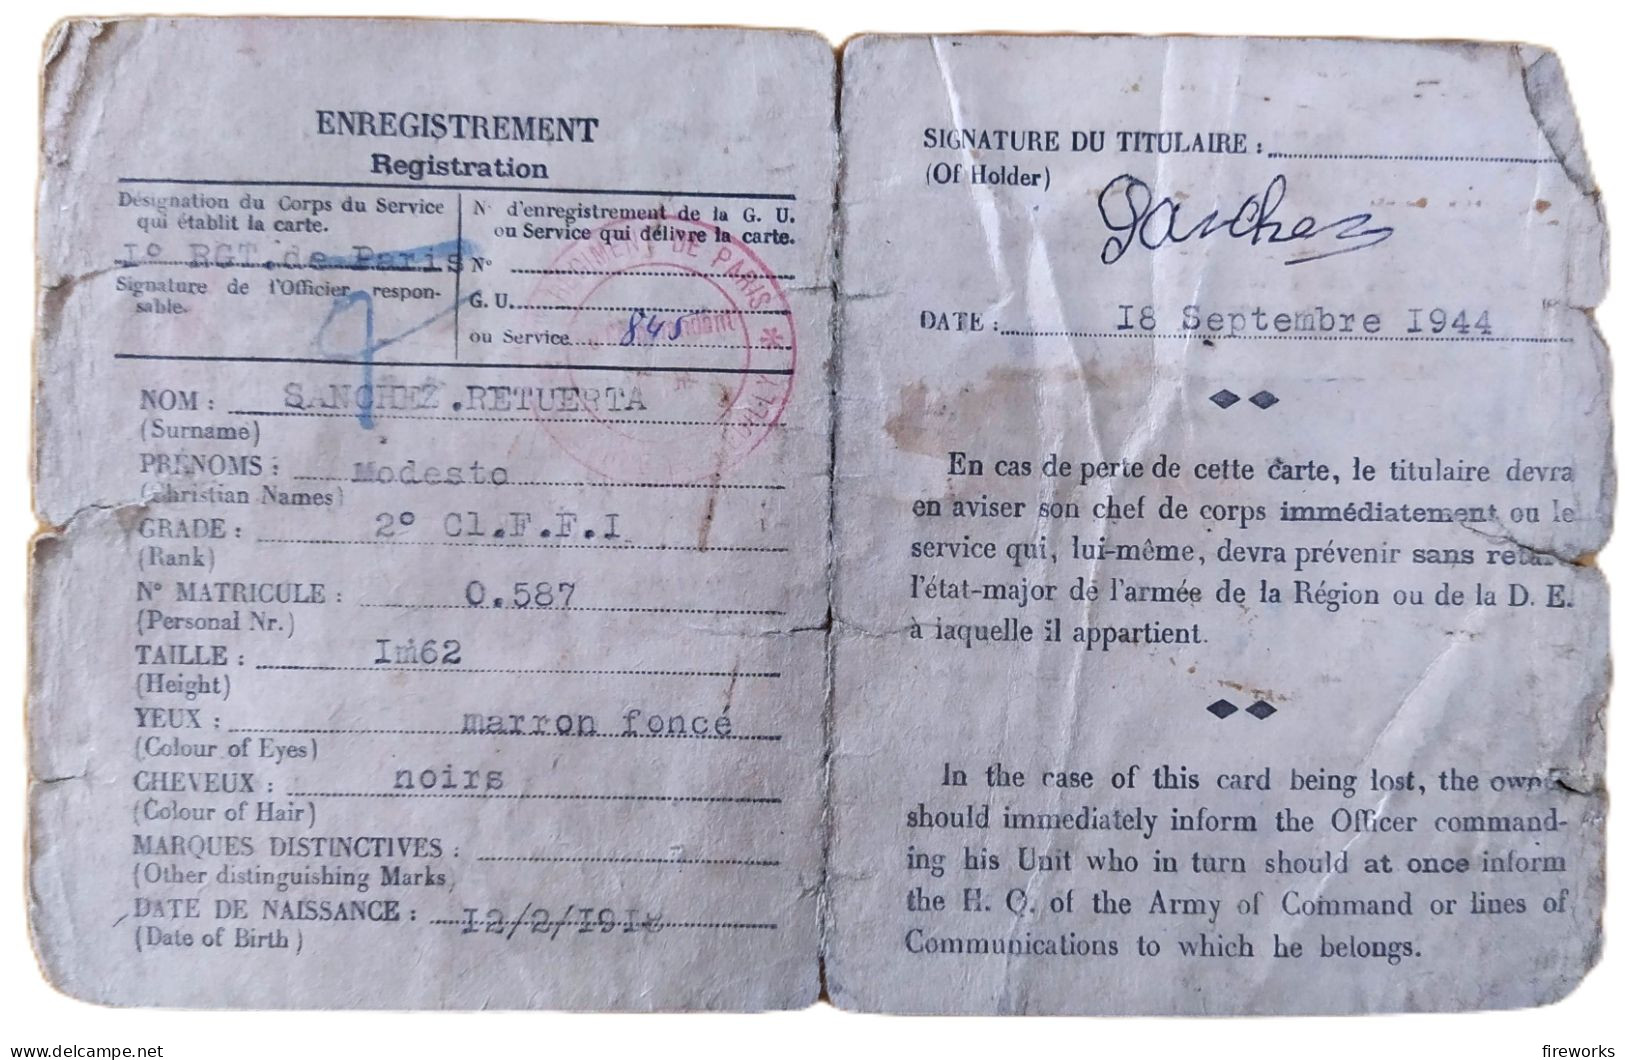 ENREGISTREMENT
Registration
Désignation du Corps du Service
qui établit la carte.
I° RGT.de Paris
Signature de l'Officier respon-
sable.
N° d'enregistrement de la G. U.
ou Service qui délivre la carte.
N°
G. U.
ou Service 845
RÉGIMENT DE PARIS
NOM : SANCHEZ.RETUERTA
(Surname)
PRÉNOMS : Modesto
(Christian Names)
GRADE : 2° Cl.F.F.I
(Rank)
N° MATRICULE : 0.587
(Personal Nr.)
TAILLE : Im62
(Height)
YEUX : marron foncé
(Colour of Eyes)
CHEVEUX : noirs
(Colour of Hair)
MARQUES DISTINCTIVES :
(Other distinguishing Marks)
DATE DE NAISSANCE :
(Date of Birth)
SIGNATURE DU TITULAIRE :
(Of Holder)
Sanchez
DATE : I8 Septembre I944
En cas de perte de cette carte, le titulaire devra
en aviser son chef de corps immédiatement ou le
service qui, lui-même, devra prévenir sans retard
l'état-major de l'armée de la Région ou de la D. E.
à laquelle il appartient.
In the case of this card being lost, the owner
should immediately inform the Officer command-
ing his Unit who in turn should at once inform
the H. Q. of the Army of Command or lines of
Communications to which he belongs.
delcampe.net
fireworks